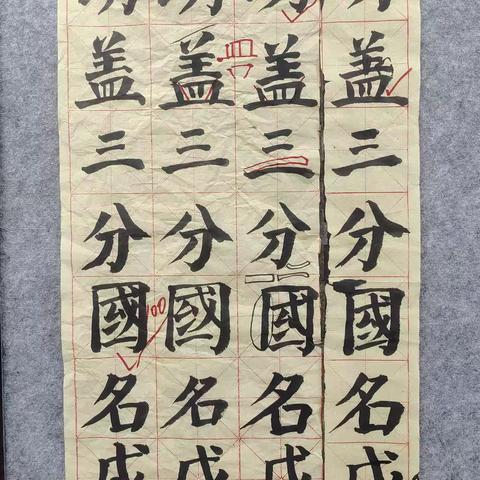 盖三分國名
盖三分國名
盖三分國名
盖三分國名
100